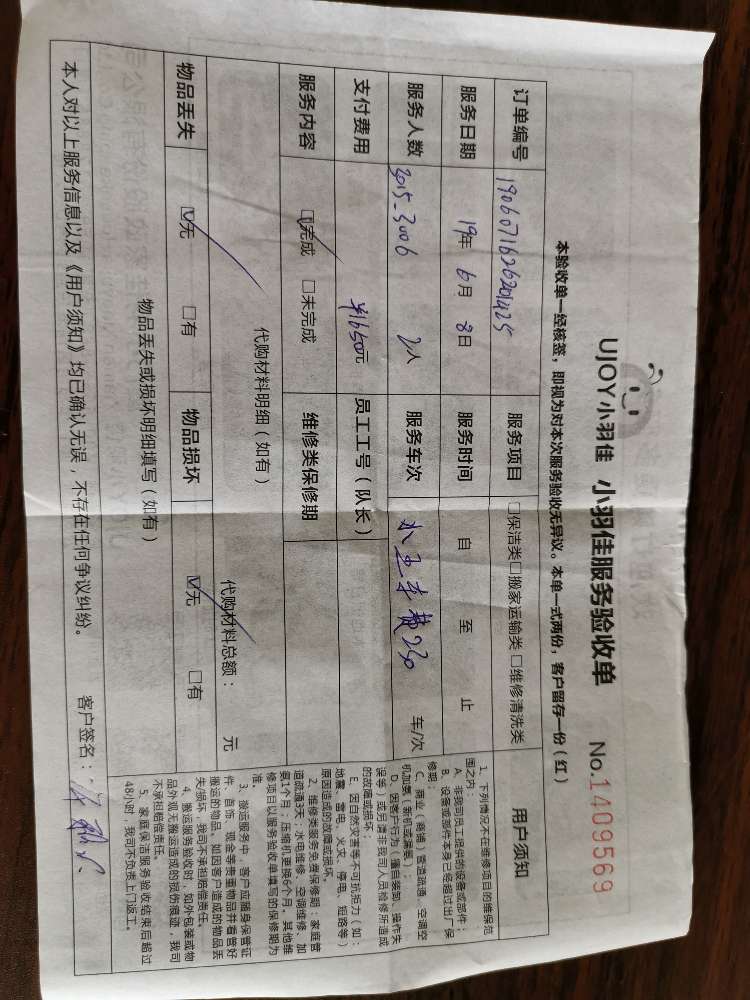 UJOY小羽佳 小羽佳服务验收单 No.1409569
本验收单一经核签，即视为对本次服务验收无异议。本单一式两份，客户留存一份（红）
订单编号 服务项目 □保洁类□搬家运输类□维修清洗类
服务日期 19年 6月 8日 服务时间 自 至 止
服务人数 3015-3006 2人 服务车次 车费230 车/次
支付费用 ¥1650元 员工工号（队长）
服务内容 ☑完成 □未完成 维修类保修期
代购材料明细（如有）
代购材料总额： 元
物品丢失 ☑无 □有 物品损坏 ☑无 □有
物品丢失或损坏明细填写（如有）
本人对以上服务信息以及《用户须知》均已确认无误，不存在任何争议纠纷。 客户签名：
用户须知
1、下列情况不在维修项目的维保范
围之内：
A、非我司员工提供的设备或部件；
B、设备或部件本身已经超过出厂保
修期；
C、商业（商铺）管道疏通、空调空
机加氨（新机或漏氨）；
D、因客户行为（擅自装卸、操作失
误等）或另请非我司人员检修所造成
的故障或损坏；
E、因自然灾害等不可抗拒力（如：
地震、雷电、火灾、停电、短路等）
原因造成的故障或损坏。
2、维修类服务免费保修期：家庭管
道疏通3天；水电维修、空调维修、加
氨1个月；压缩机更换6个月。其他维
修项目以服务验收单填写的保修期为
准。
3、搬运服务中，客户应随身保管证
件、首饰、现金等贵重物品并看管好
搬运的物品。如因客户造成的物品丢
失/损坏，我司不承担赔偿责任。
4、搬运服务验收时，如外包装或物
品外观无搬运造成的损伤痕迹，我司
不承担赔偿责任。
5、家庭保洁服务验收结束后超过
48小时，我司不负责上门返工。